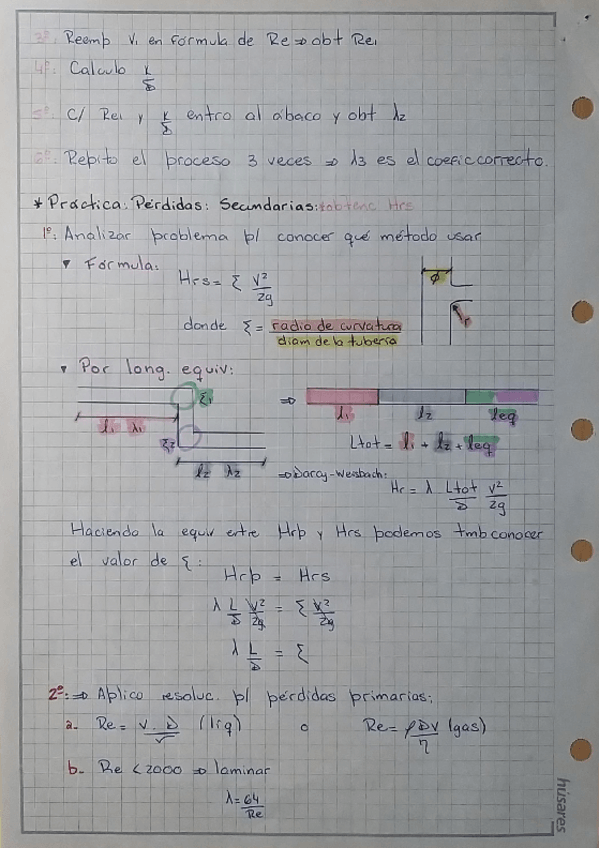 3º: Reemp V₁ en fórmula de Re ⇒ obt Re₁
4º: Calculo K/D
5º: c/ Re₁ y K/D entro al ábaco y obt λ₂
6º: Repito el proceso 3 veces ⇒ λ3 es el coefic correcto.
* Práctica: Pérdidas: Secundarias: obtenc Hrs
1º: Analizar problema p/ conocer qué método usar
▾ Fórmula:
Hrs = ξ V²/2g
φ
r
donde ξ = radio de curvatura / diam de la tubería
▾ Por long. equiv:
ξ₁ ⇒
l₁ λ₁ l₁ l₂ leq
ξ₂ Ltot = l₁ + l₂ + leq
l₂ λ₂ ⇒ Darcy-Weisbach:
Hr = λ Ltot/D V²/2g
Haciendo la equiv entre Hrp y Hrs podemos tmb conocer
el valor de ξ:
Hrp = Hrs
λ L/D V²/2g = ξ V²/2g
λ L/D = ξ
2º: ⇒ Aplico resoluc. p/ pérdidas primarias:
a- Re = V . D/√ (liq) o Re = ρDV/η (gas)
b- Re < 2000 ⇒ laminar
λ = 64/Re
húsares